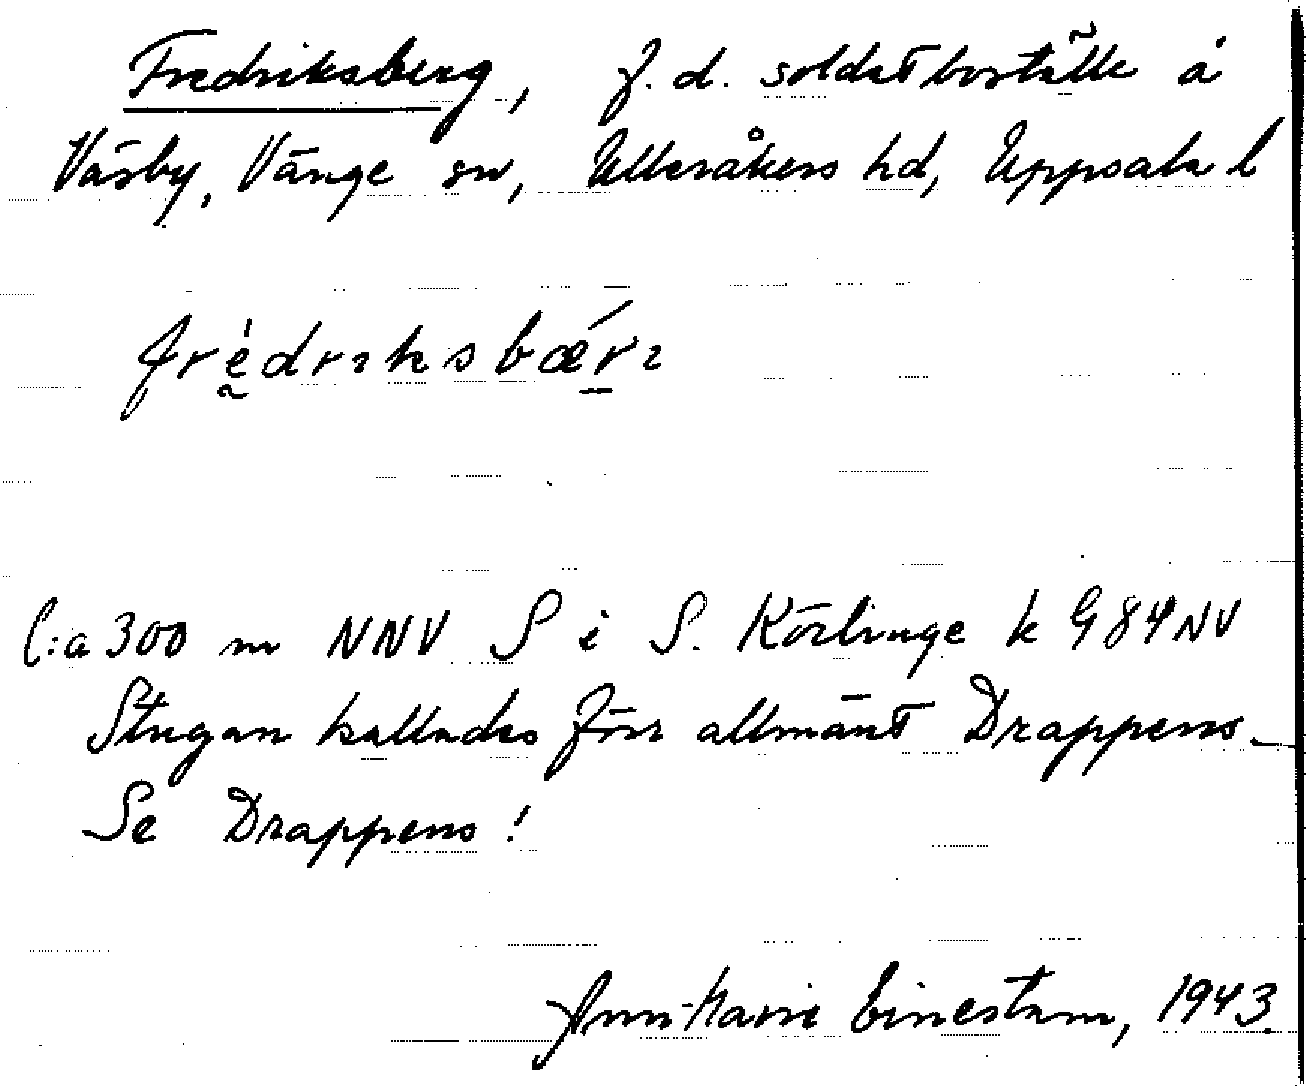 Fredriksberg, f.d. soldatboställe å
Väsby, Vänge sn, Ulleråkers hd, Uppsala l
frédrɩksbærɩ
C:a 300 m NNV S i S. Körlinge k G 84 NV
Stugan kallades förr allmänt Drappens.
Se Drappens!
Ann-Marie Einestam, 1943.